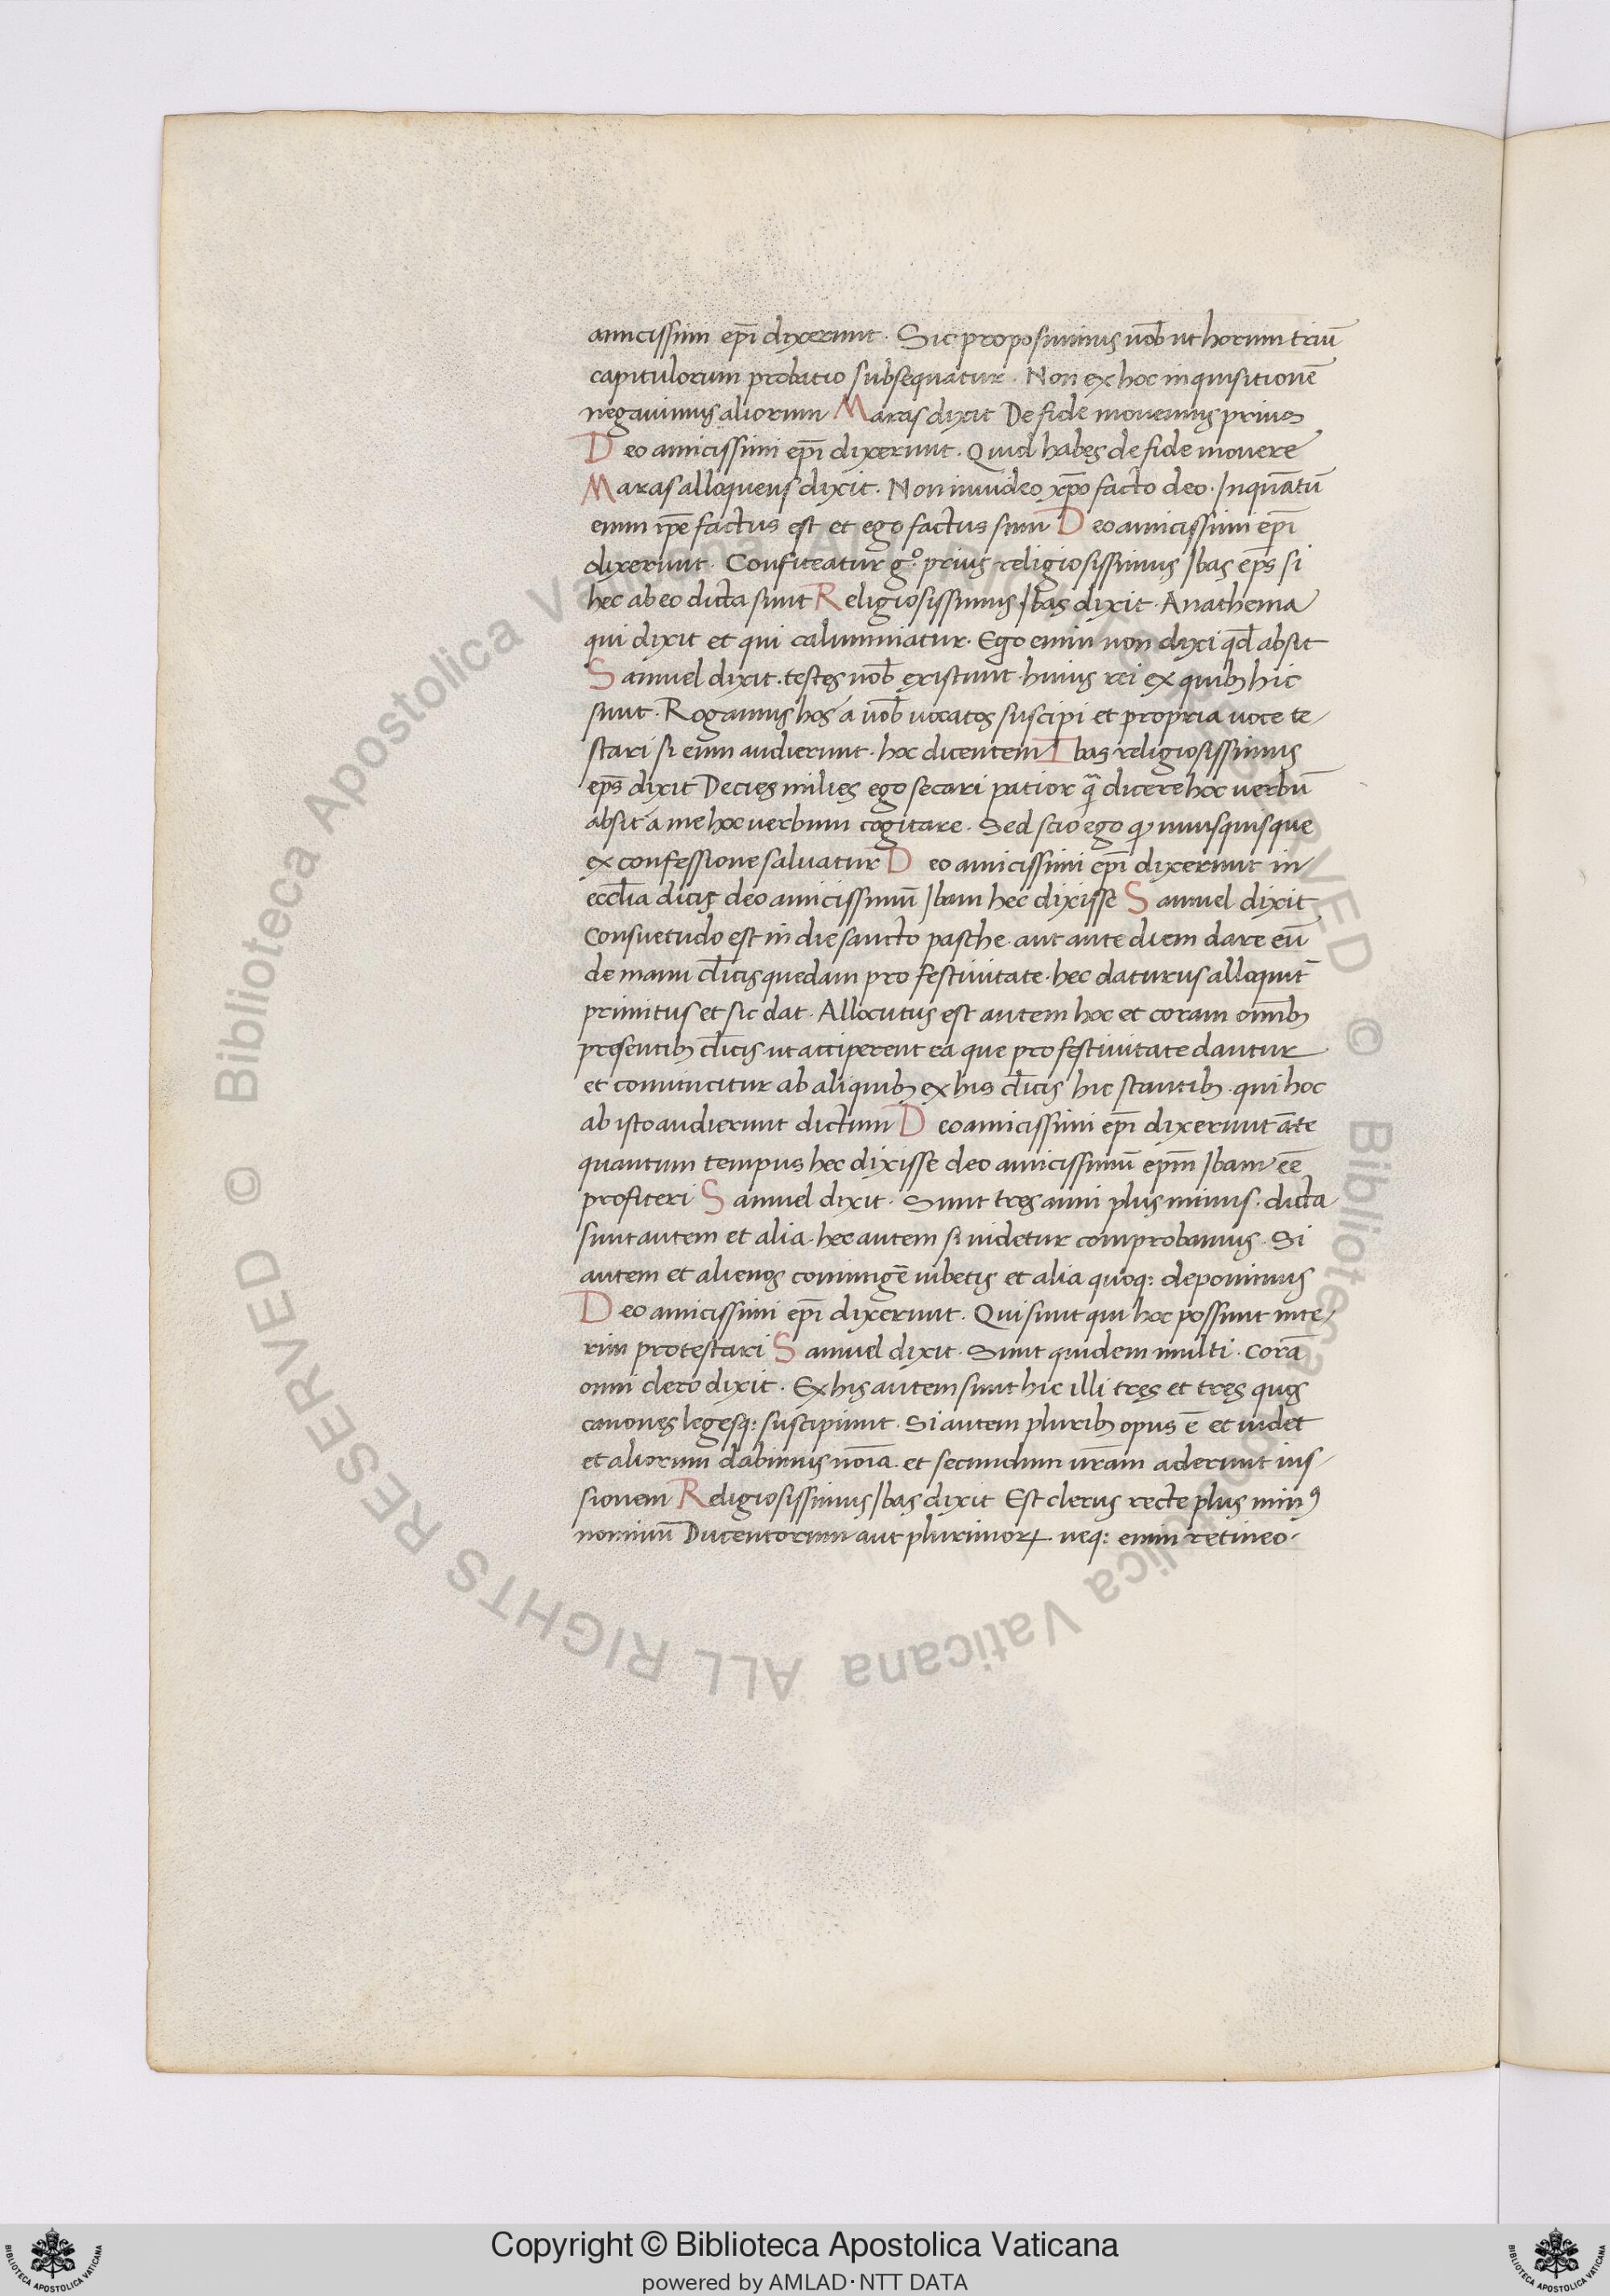 amicissimi ep̄i dixerunt. Sic proposuimus uob̄ ut horum triū
capitulorum probatio subsequatur. Non ex hoc inquisitionē
negauimus aliorum Maras dixit De fide mouemus prius
Deo amicissimi ep̄i dixerunt. Quid habes de fide mouere
Maras alloquens dixit. Non inuideo xp̄o facto deo. Inquātū
enim ip̄e factus est et ego factus sum Deo amicissimi ep̄i
dixerunt. Confiteatur g°. prius religiosissimus Ibas ep̄s si
hec ab eo dicta sunt Religiosissimus Ibas dixit. Anathema
qui dixit et qui calumniatur. Ego enim non dixi qd̄ absit
Samuel dixit. testes nob̄ existunt. huius rei ex quibꝫ hic
sunt. Rogamus hos a nob̄ uocatos suscipi et propria uoce te/
stari si eum audierunt. hoc dicentem Ibas religiosissimus
ep̄s dixit Decies milies ego secari patior q̄ dicere hoc uerbū
absit a me hoc uerbum cogitare. Sed scio ego ꝙ unusquisque
ex confessione saluatur Deo amicissimi ep̄i dixerunt in
eccl̄ia dicis deo amicissimū Ibam hec dixisse Samuel dixit
Consuetudo est in die sancto pasche. aut ante diem dare eū
de manu cl̄icis quedam pro festiuitate. hec daturus alloquit̄
primitus et sic dat. Allocutus est autem hoc et coram om̄ibꝫ
presentibꝫ cl̄icis ut acciperent ea que pro festiuitate dantur
et conuincitur ab aliquibꝫ ex his cl̄icis hic stantibꝫ. qui hoc
ab isto audierunt dictum Deo amicissimi ep̄i dixerunt āte
quantum tempus hec dixisse deo amicissimū ep̄m Ibam eē
profiteri Samuel dixit. Sunt tres anni plus minus. dicta
sunt autem et alia. hec autem si uidetur comprobamus. Si
autem et alienos coniungē iubetis et alia quoq: deponimus
Deo amicissimi ep̄i dixerunt. Qui sunt qui hoc possunt inte/
rim protestari Samuel dixit. Sunt quidem multi. Corā
omni clero dixit. Ex his autem sunt hic illi tres et tres quos
canones legesq: suscipiunt. Si autem pluribꝫ opus ē et uidet
et aliorum dabimus noīa. et secundum ur̄am aderunt ius/
sionem Religiosissimus Ibas dixit Est clerus recte plus minꝰ
nominū Ducentorum aut plurimoꝝ. neq: enim retineo.
Copyright © Biblioteca Apostolica Vaticana
powered by AMLAD·NTT DATA
© Biblioteca Apostolica Vaticana ALL RIGHTS RESERVED © Biblioteca Apostolica Vaticana ALL RIGHTS RESERVED
BIBLIOTECA APOSTOLICA VATICANA
BIBLIOTECA APOSTOLICA VATICANA